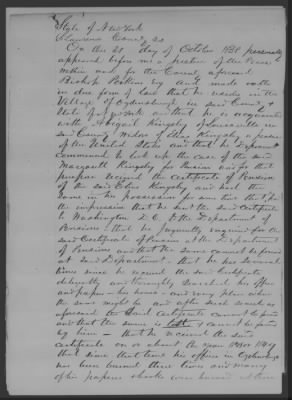 State of New York
St Lawrence County ss
On this 21 day of October 1881 personally
appeared before me a Justice of the Peace
within and for the County aforesaid
Bishop Perkins Esq and made oath
in due form of Law that he resides in the
Village of Ogdensburgh in said County &
State of New York and that he is acquainted
with Abigail Kingsby of
said County Widow of Elias Kingsby a pensioner
of the United States and that he
commenced to look up the case of the said
Kingsby for Pension and for that
purpose received the certificate of Pension
of the said Elias Kingsby and had the
same in his possession for some time that
the impression that he sent the said Certificate
to Washington D.C. to the Department of
Pensions that he frequently enquired for the
said Certificate of Pension at the Department
of Pensions and that the same cannot be found
at said Department that he has several
times since he received the said Certificate
diligently and thoroughly searched his office
and papers in his house and every place where
the same might be and after such search as
aforesaid the said Certificate cannot be found
and that the same is lost & cannot be found
by him that he received the said
certificate on or about the year
that since that time his office in Ogdensburgh
has been burned three times and many
of his papers & books were burned at